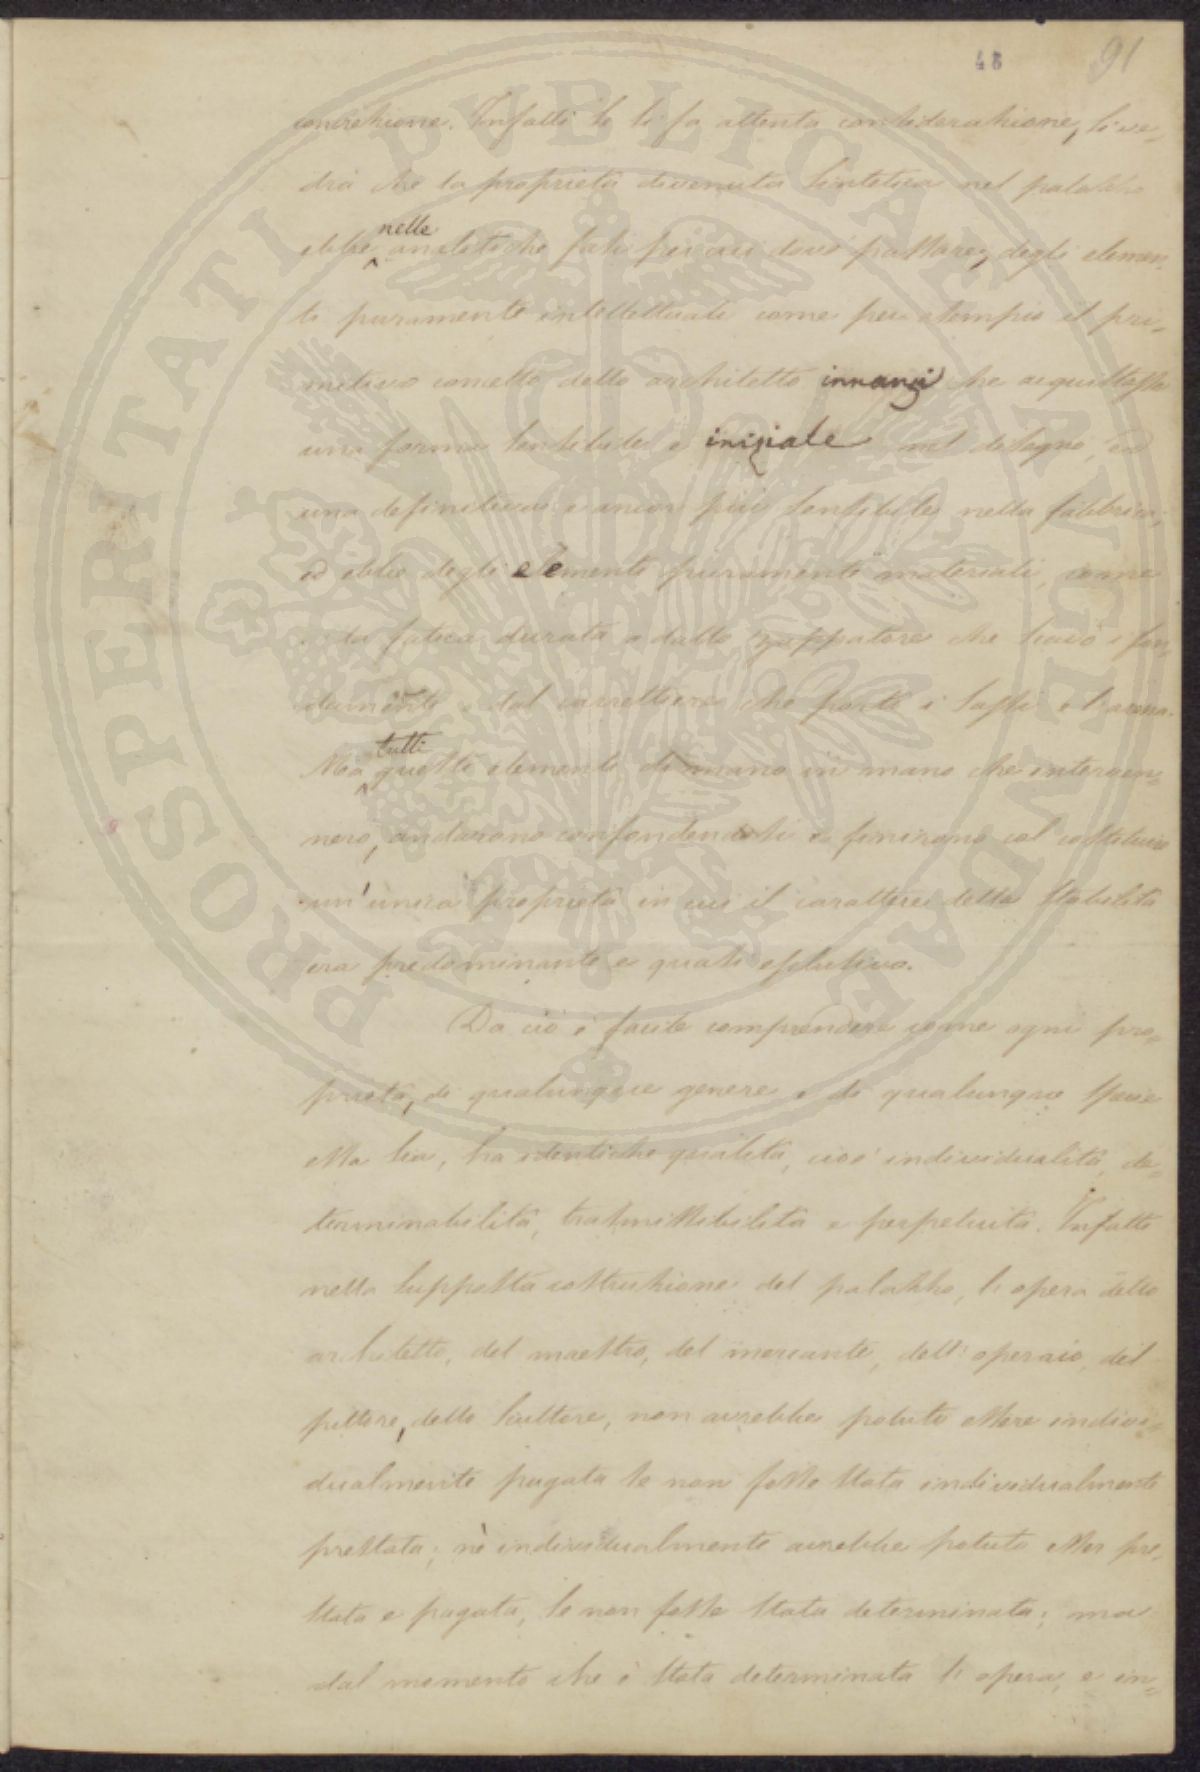 48 91
concrezione. Infatti se si fa attenta considerazione, si ve-
drà che la proprietà divenuta sintetica nel palazzo
ebbe nelle analitiche fasi per cui dové passare, degli elemen-
ti puramente intellettuali come per esempio il pri-
mitivo concetto dello architetto innanzi che acquistasse
una forma sensibile e iniziale nel disegno, ed
una definitiva e ancor più sensibile nella fabbrica;
ed ebbe degli elementi puramente materiali, come
la fatica durata e dallo zappatore che scavò i fon-
damenti e dal carrettiere che portò i sassi e l'arena.
Ma tutti questi elementi di mano in mano che interven-
nero, andarono confondendosi e finirono col costituire
un'unica proprietà in cui il carattere della stabilità
era predominante e quasi esclusivo.
Da ciò è facile comprendere come ogni pro-
prietà, di qualunque genere e di qualunque specie
essa sia, ha identiche qualità, cioè individualità, de-
terminabilità, trasmissibilità e perpetuità. Infatti
nella supposta costruzione del palazzo, l'opera dello
architetto, del maestro, del mercante, dell'operaio, del
pittore, dello scultore, non avrebbe potuto essere indivi-
dualmente pagata se non fosse stata individualmente
prestata; nè individualmente avrebbe potuto esser pre-
stata e pagata, se non fosse stata determinata; ma
dal momento che è stata determinata l'opera, e in-
PROSPERITATI PVBLICAE AVGENDAE